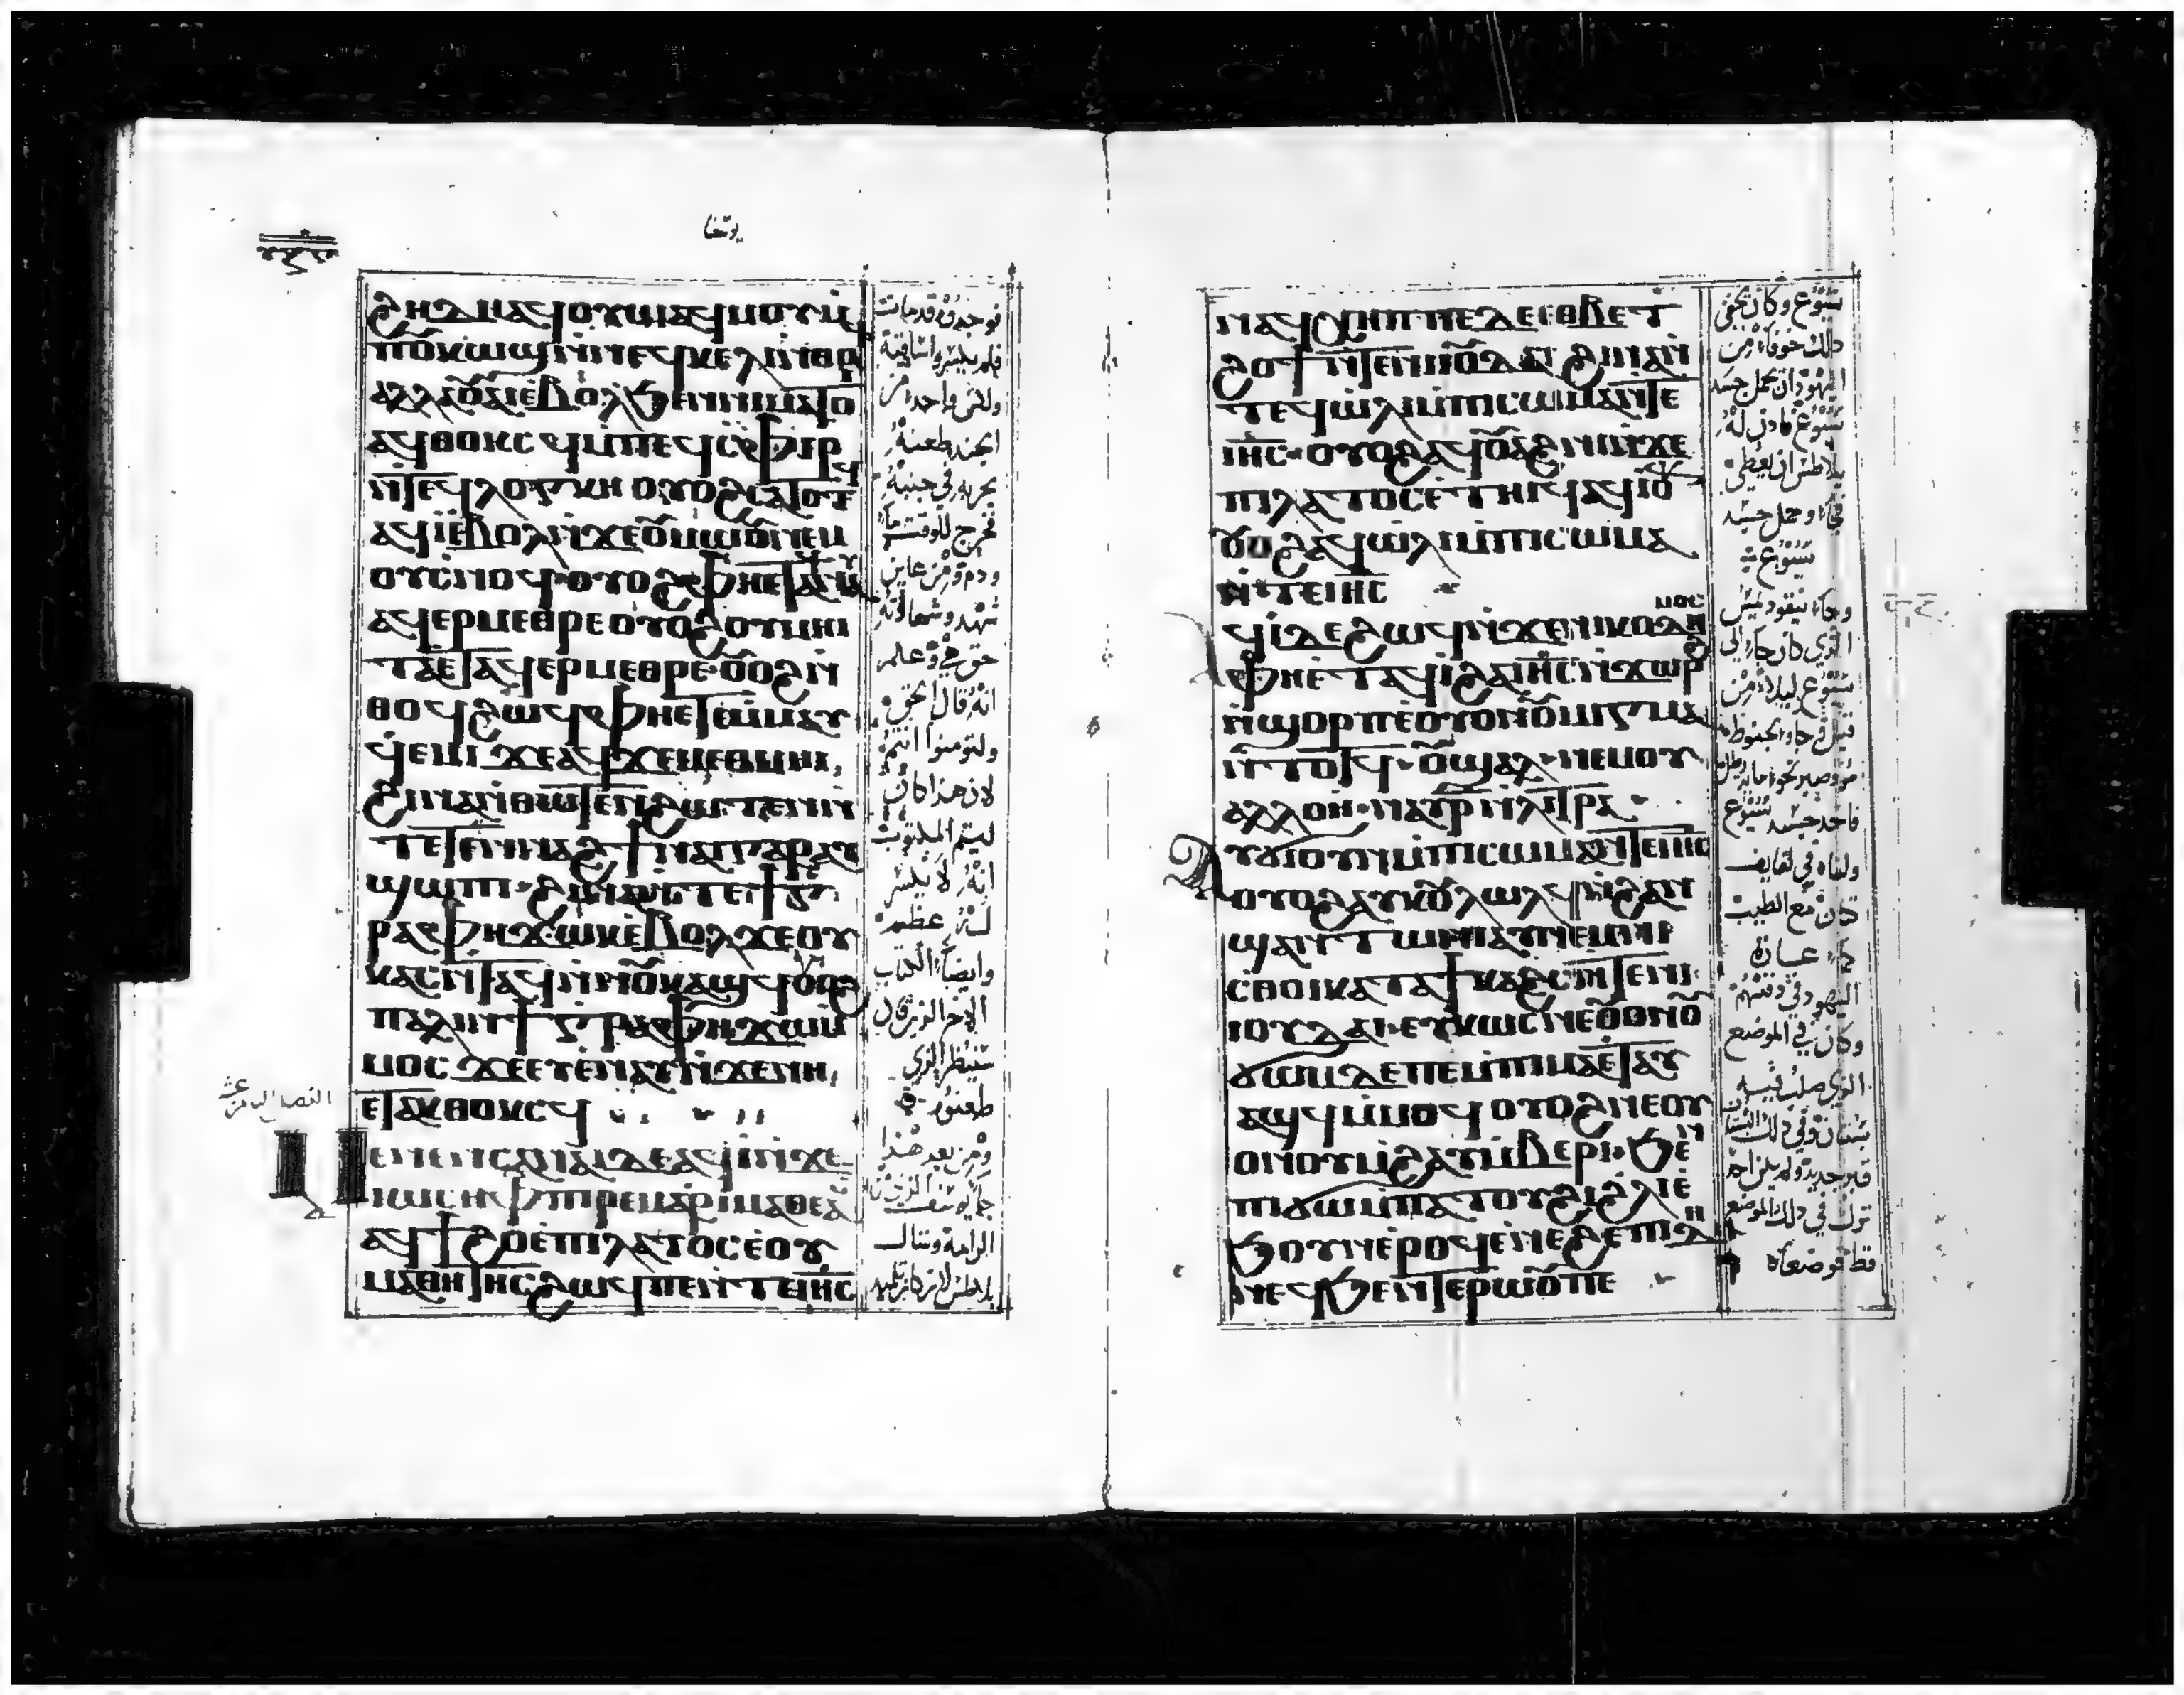 يوحنا
ϩⲏⲇⲏⲁϥⲟⲩⲱⲁϥⲙⲟⲩⲙ
ⲡⲟⲩⲕⲱϣⲛⲛⲉϥⲕⲉⲗⲛⲑⲣ
ⲁⲗⲗⲁⲟⲩⲁⲓⲉⲃⲟⲗϧⲉⲛⲛⲓⲙⲁⲧⲟ
ⲁϥⲑⲟⲕⲥϥⲙⲡⲉϥⲥⲫⲓⲣ
ⲛⲧⲉϥⲗⲟⲅⲭⲏⲟⲩⲟϩⲥⲁⲧⲟⲧϥ
ⲁϥⲓⲉⲃⲟⲗⲛϫⲉⲟⲩⲙⲱⲟⲩⲛⲉⲙ
ⲟⲩⲥⲛⲟϥ·ⲟⲩⲟϩⲫⲏⲉⲧⲁϥⲛⲁⲩ
ⲁϥⲉⲣⲙⲉⲑⲣⲉⲟⲩⲟϩⲟⲩⲙⲏⲓ
ⲧⲁⲉⲧⲁϥⲉⲣⲙⲉⲑⲣⲉ·ⲟⲩⲟϩⲛ
ⲑⲟϥϩⲱϥⲫⲏⲉⲧⲉⲙⲙⲁⲩ
ϥⲉⲙⲓϫⲉⲁϥϫⲉⲙⲉⲑⲙⲏⲓ
ϩⲓⲛⲁⲛⲑⲱⲧⲉⲛϩⲱⲧⲉⲛⲛ
ⲧⲉⲧⲉⲛⲛⲁϩϯⲛⲁⲓⲅⲁⲣⲁⲩ
ϣⲱⲡⲓ·ϩⲓⲛⲁⲛⲧⲉϯⲅ
ⲣⲁⲫⲏϫⲱⲕⲉⲃⲟⲗϫⲉⲟⲩ
ⲕⲁⲥⲛⲧⲁϥⲛⲛⲟⲩⲕⲁϣϥⲟⲩⲟϩ
ⲡⲁⲗⲓⲛϯⲅⲣⲁⲫⲏϫⲱⲙ
ⲙⲟⲥϫⲉⲉⲩⲉⲛⲁⲩⲛϫⲉⲛⲏ
ⲉⲧⲁⲩⲑⲟⲕⲥϥ
ⲉⲛⲉⲛⲥⲁⲛⲁⲓⲇⲉⲁϥⲓⲛϫⲉ
ⲓⲱⲥⲏⲫⲡⲓⲣⲉⲙⲁⲣⲓⲙⲁⲑⲉⲁ
ⲁϥϯϩⲟⲉⲡⲓⲗⲁⲧⲟⲥⲉⲟⲩ
ⲙⲁⲑⲏⲧⲏⲥϩⲱϥⲡⲉⲛⲧⲉⲓⲏⲥ
فوجدوه قد مات
فلم يكسروا ساقيه
ولكن واحد من
الجند طعنه
بحربه في جنبه
فخرج للوقت ما
ودم ومن عاين
شهد وشهادته
حق هي وعلم
انه قال الحق
ولتومنوا انتم
لان هذا كان
ليتم المكتوب
انه لا يكسر
له عظم
وايضا الكتاب
الاخر الذي قال
سينظر الذي
طعنوه
ومن بعد هذا
جا يوسف الذي من
الرامة وسال
بيلاطس لانه كان تلميذ
ⲛⲁϥϩⲏⲡⲡⲉⲇⲉⲉⲑⲃⲉⲧ
ϩⲟϯⲛⲧⲉⲛⲓⲟⲩⲇⲁⲓϩⲓⲛⲁⲛ
ⲧⲉϥⲱⲗⲓⲙⲡⲓⲥⲱⲙⲁⲛⲧⲉ
ⲓⲏⲥ·ⲟⲩⲟϩⲁϥⲟⲩⲁϩⲥⲁϩⲛⲓⲛϫⲉ
ⲡⲓⲗⲁⲧⲟⲥⲉⲧⲏⲓϥⲁϥⲓⲟ
ⲩⲟϩⲁϥⲱⲗⲓⲙⲡⲓⲥⲱⲙⲁ
ⲛⲧⲉⲓⲏⲥ
ϥⲓⲇⲉϩⲱϥⲛϫⲉⲛⲓⲕⲟⲇⲏⲙⲟⲥ
ⲫⲏⲉⲧⲁϥⲓϩⲁⲓⲏⲥⲛϫⲱⲣϩ
ⲛϣⲟⲣⲡⲉⲟⲩⲟⲛⲟⲩⲙⲓⲅⲙⲁ
ⲛⲧⲟⲧϥ·ⲟⲩϣⲁⲗ·ⲛⲉⲙⲟⲩ
ⲁⲗⲗⲟⲏ·ⲛⲁⲩⲣⲛⲗⲓⲧⲣⲁ·
ⲁⲩϭⲓⲟⲩⲛⲙⲡⲓⲥⲱⲙⲁⲛⲧⲉⲓⲏⲥ
ⲟⲩⲟϩⲁⲩⲕⲟⲩⲗⲱⲗϥⲛϩⲁⲛ
ϣⲁⲛⲧⲱⲛⲓⲁⲩⲛⲉⲙⲛⲓ
ⲥⲑⲟⲓⲕⲁⲧⲁϯⲕⲁϩⲥⲛⲧⲉⲛⲓ
ⲓⲟⲩⲇⲁⲓ·ⲉⲩⲕⲱⲥⲛⲉⲟⲩⲟⲛⲟⲩ
ϭⲱⲙⲇⲉⲡⲉⲙⲡⲓⲙⲁⲉⲧⲁⲩ
ⲁϣϥⲙⲙⲟϥⲟⲩⲟϩⲛⲉⲟⲩ
ⲟⲛⲟⲩⲙϩⲁⲩⲙⲃⲉⲣⲓ·ϧⲉⲛ
ⲡⲓϭⲱⲙⲡⲁⲧⲟⲩϩⲓϩⲗⲓⲉ
ϧⲟⲩⲛⲉⲣⲟϥⲉⲛⲉϩⲉⲡⲓⲇⲏ
ⲛⲉϥϧⲉⲛⲧⲉⲣⲱⲟⲩⲡⲉ
يسوع وكان يخفي
ذلك خوفا من
اليهود ان يحمل جسد
يسوع فاذن له
بيلاطس ان يعطى
فجا وحمل جسد
يسوع
وجا نيقوديمس
الذي كان جا الى
يسوع ليلا من
قبل وجاب حنوط
مر وصبر نحو ماية رطل
فاخذ جسد يسوع
ولفاه في لفايف
كتان مع الطيب
كما عادة
اليهود في دفنهم
وكان في الموضع
الذي صلب فيه
بستان وفي ذلك البستان
قبر جديد ولم يكن احد
ترك في ذلك الموضع
قط فوضعاه